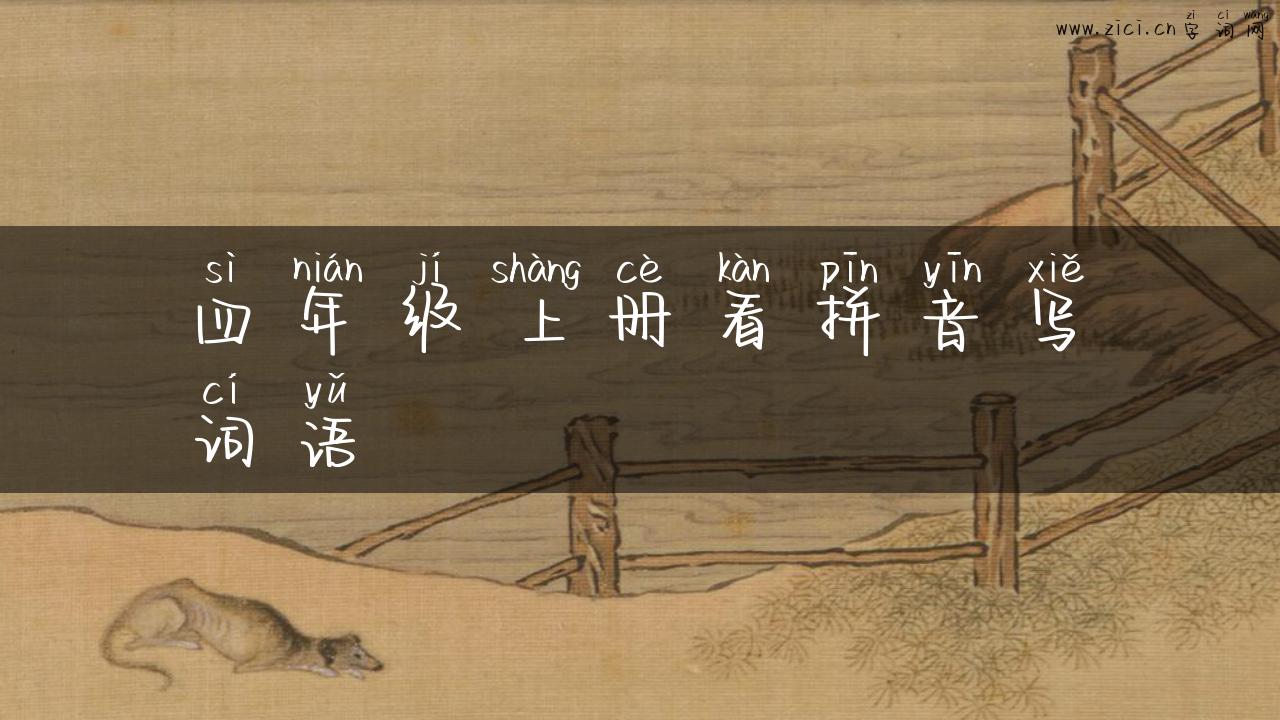 zì cí wǎng
www.zici.cn 字词网
sì nián jí shàng cè kàn pīn yīn xiě
四年级上册看拼音写
cí yǔ
词语